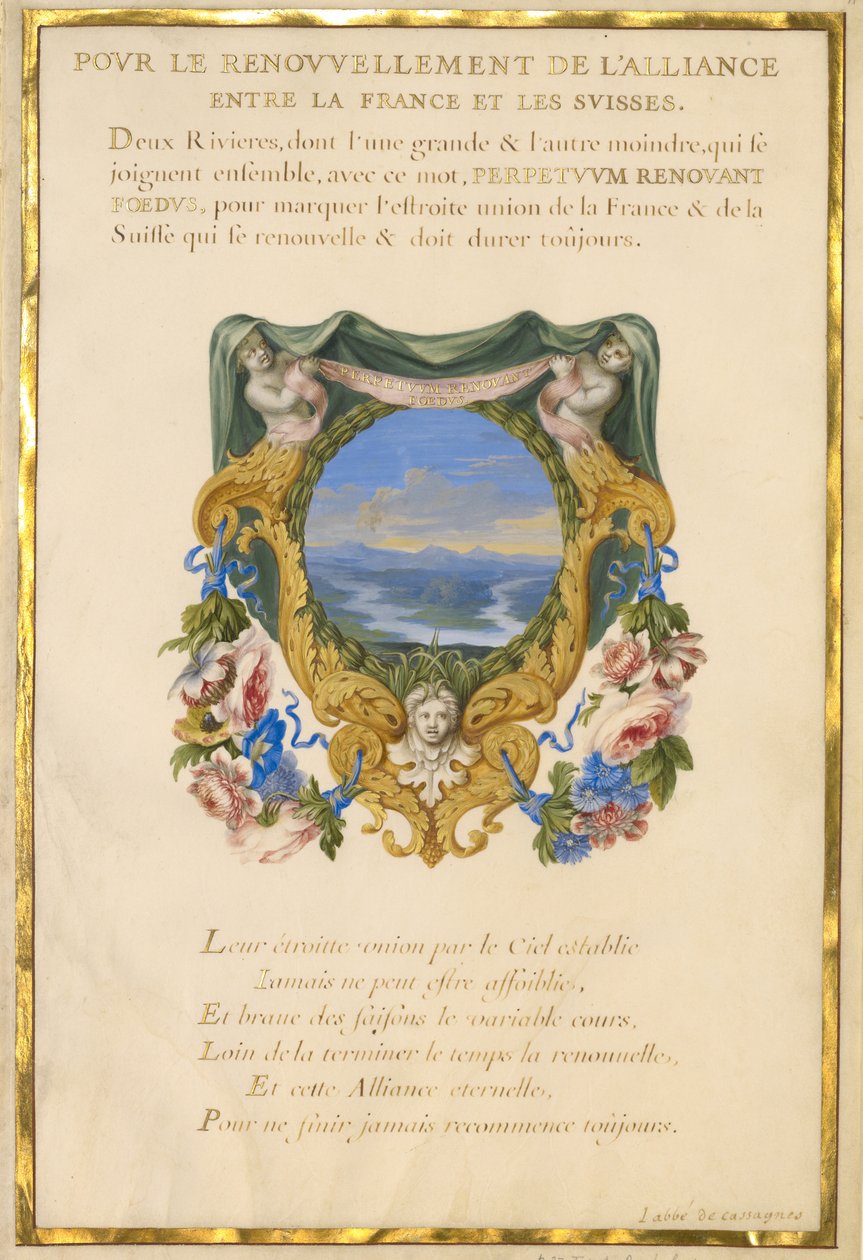 POVR LE RENOVVELLEMENT DE L'ALLIANCE
ENTRE LA FRANCE ET LES SVISSES.
Deux Rivieres, dont l'une grande & l'autre moindre, qui se
joignent ensemble, avec ce mot, PERPETVVM RENOVANT
FOEDVS, pour marquer l'estroite union de la France & de la
Suisse qui se renouvelle & doit durer toûjours.
PERPETVVM RENOVANT
FOEDVS.
Leur étroitte union par le Ciel establie
Iamais ne peut estre affoiblie,
Et braue des saisons le variable cours,
Loin de la terminer le temps la renouuelle,
Et cette Alliance eternelle,
Pour ne finir jamais recommence toûjours.
l abbé de cassagnes